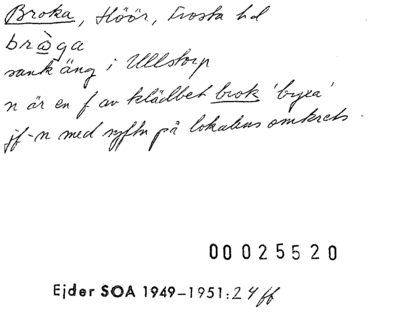 Broka, Höör, Frosta hd
bròga
sank äng i Ullstorp
n är en f av klädbet brok 'byxa'
jf-n med syftn på lokalens omkrets.
00025520
Ejder SOA 1949–1951: 24 ff